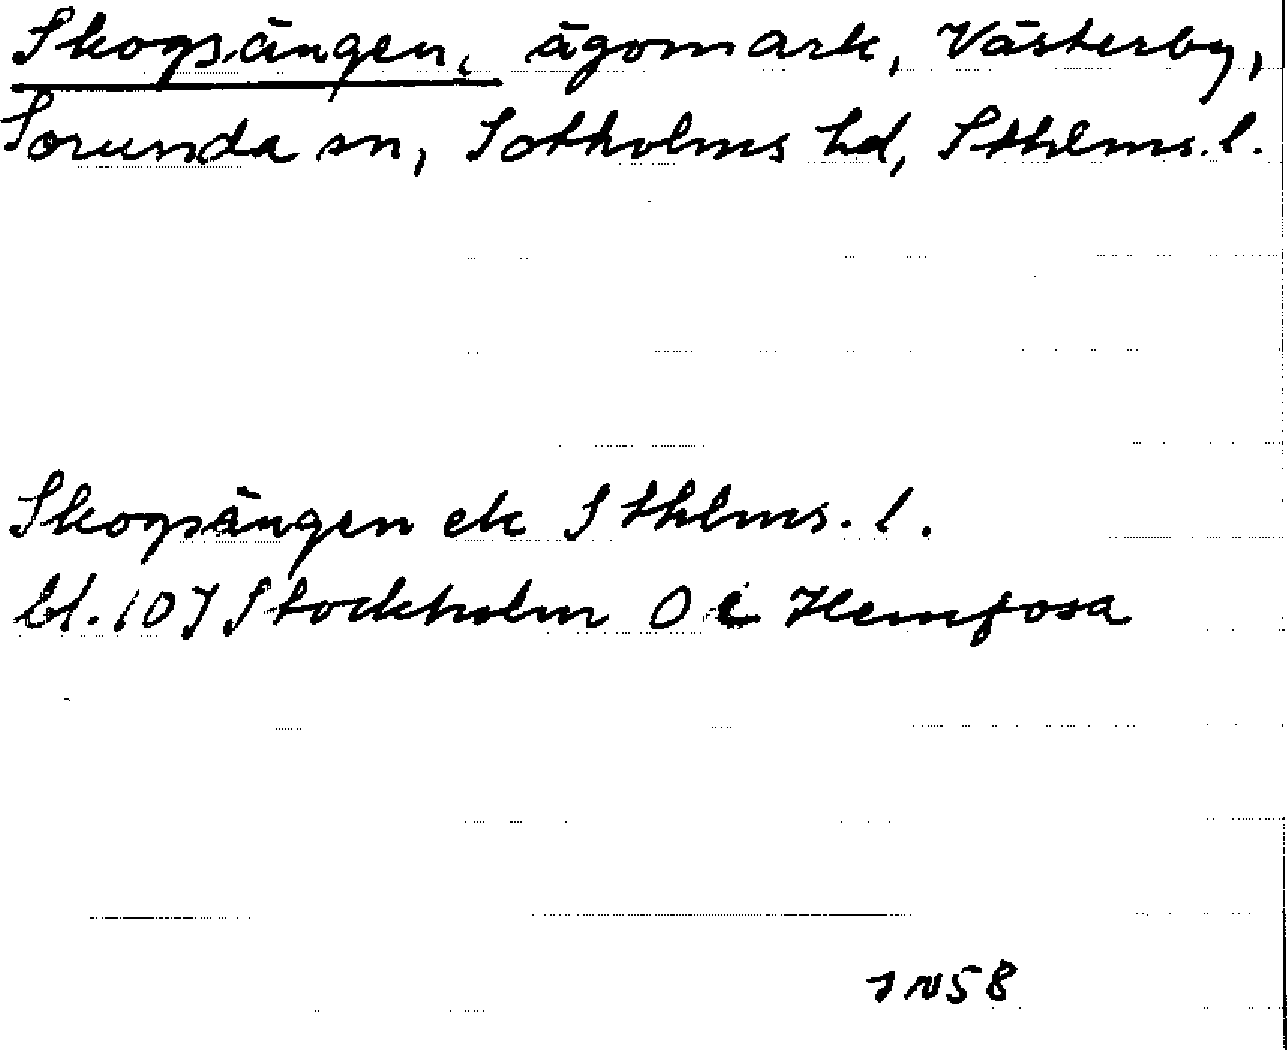 Skogsängen, ägomark, Västerby,
Sorunda sn, Sotholms hd, Sthlms.l.
Skogsängen ek Sthlms.l.
bl. 10J Stockholm 0 i Hemfosa